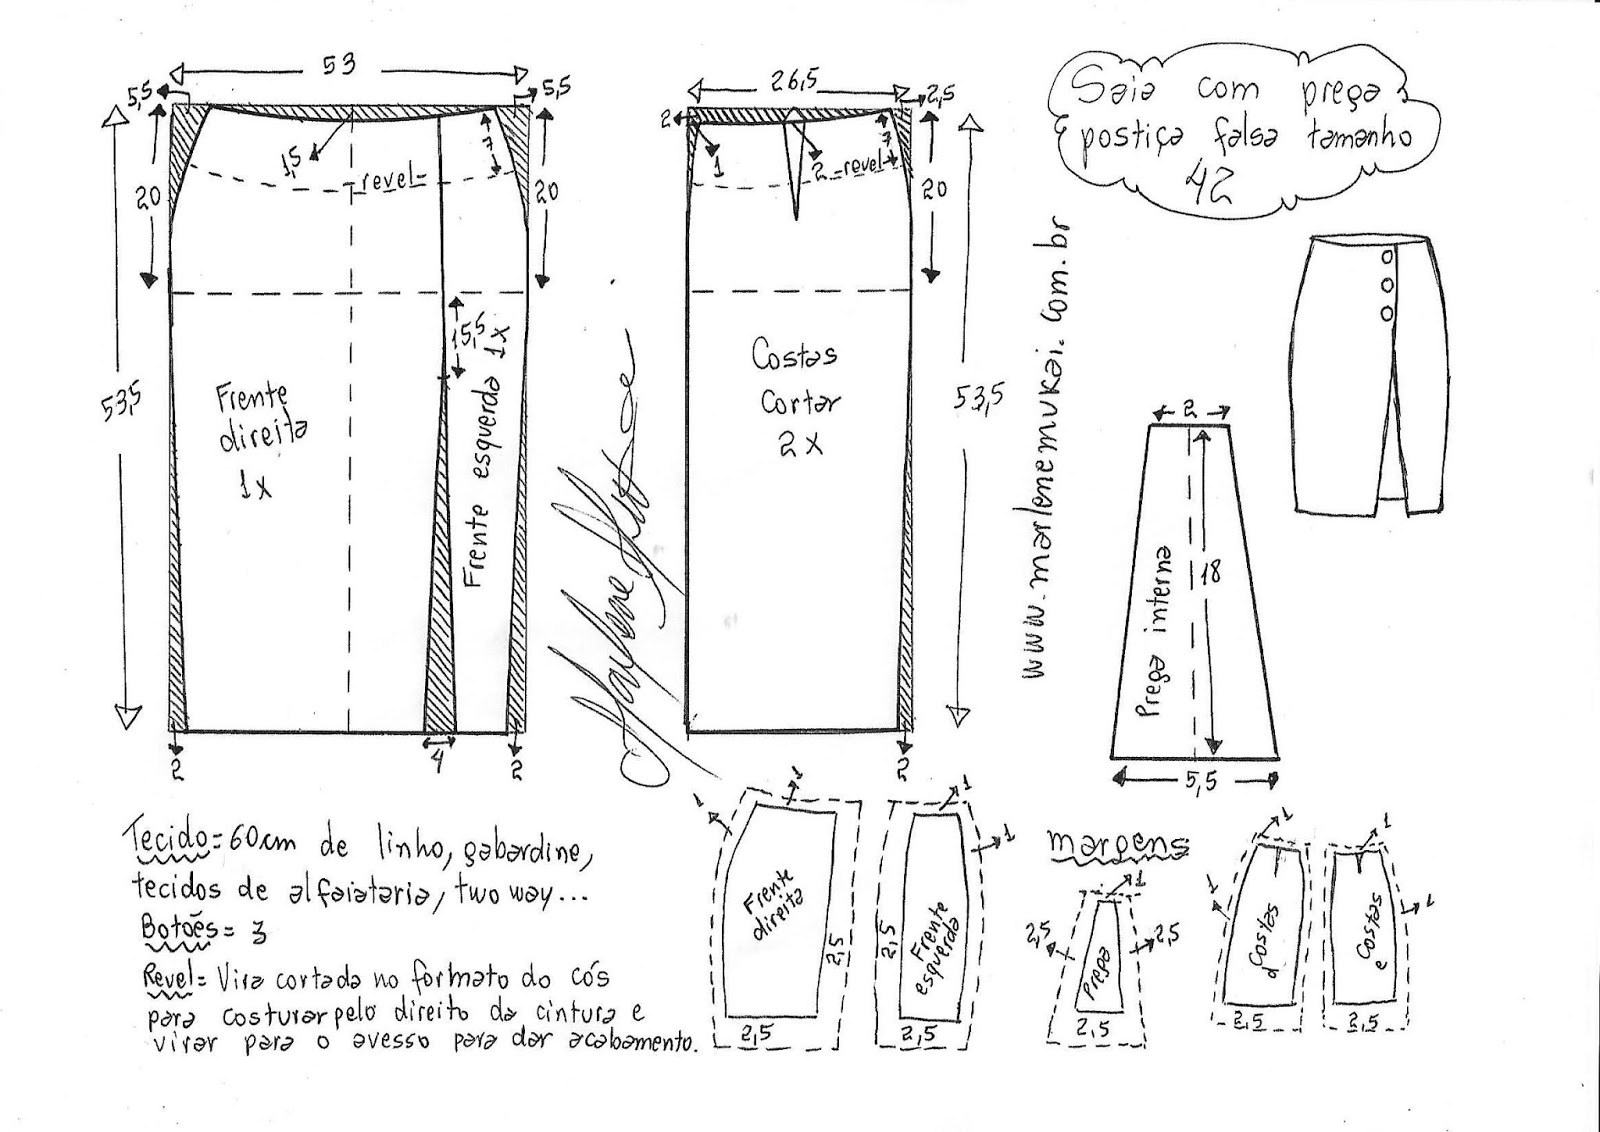 Saia com prega
postiça falsa tamanho
42
53
5,5
5,5
20
20
53,5
1,5
7
revel
15,5
Frente
direita
1x
Frente esquerda 1x
2
4
2
26,5
2,5
2
1
2
revel
7
20
53,5
Costas
Cortar
2x
2
www.marlenemukai.com.br
2
18
Prega interna
5,5
Tecido = 60cm de linho, gabardine,
tecidos de alfaiataria, two way...
Botões = 3
Revel = Vira cortada no formato do cós
para costurar pelo direito da cintura e
virar para o avesso para dar acabamento.
1
1
Frente
direita
2,5
2,5
1
1
Frente
esquerda
2,5
2,5
margens
1
2,5
2,5
Prega
2,5
1
1
Costas
d
2,5
1
1
Costas
e
2,5